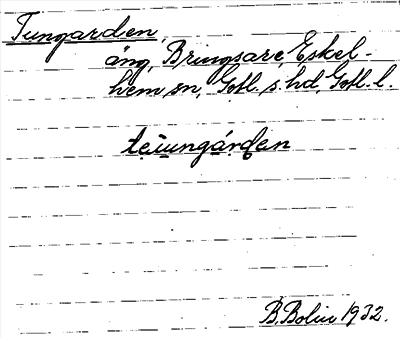 Tungarden,
äng, Bringsarve, Eskel-
hem sn, Gotl. s. hd, Gotl. l.
teiungárđen
B. Bolin 1932.